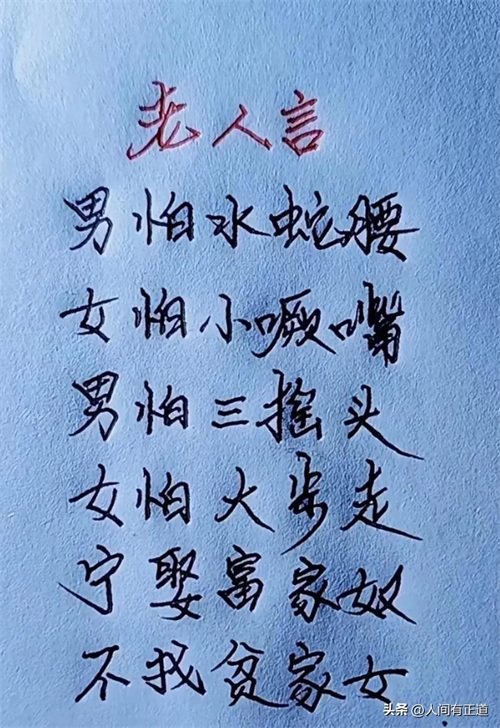 老人言
男怕水蛇腰
女怕小噘嘴
男怕三摇头
女怕大步走
宁娶富家奴
不找贫家女
头条 @人间有正道